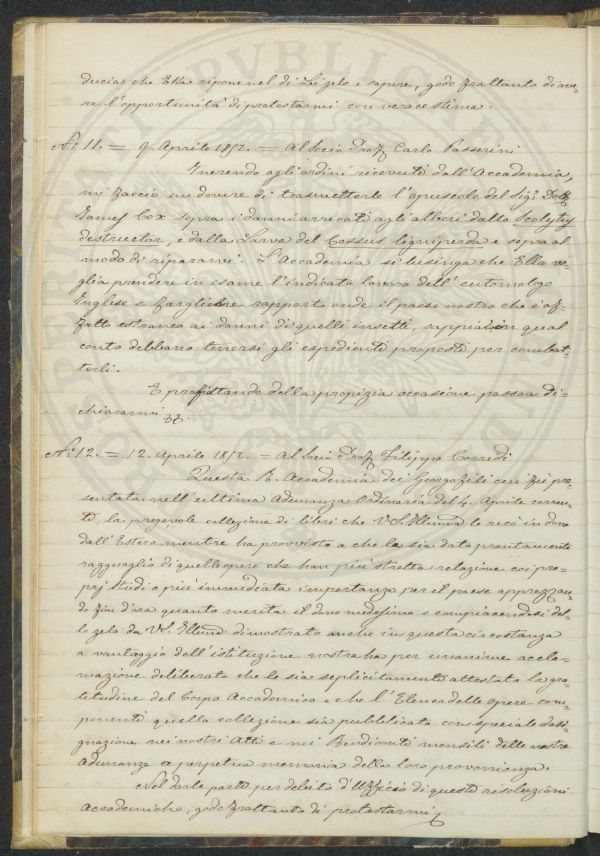 ducia che Ella ripone nel di Lei zelo e sapere, godo frattanto di ave=
re l'opportunità di protestarmi con verace stima.
N.° 11. = 9. Aprile 1852. = Al Socio Prof. Carlo Passerini
Inerendo agli ordini ricevuti dall'Accademia,
mi faccio un dovere di trasmetterle l'opuscolo del Sig.r Dott.
James Cox sopra i danni arrecati agli alberi dallo Scolytus
destructor, e dalla Larva del Cossus ligniperda e sopra al
modo di ripararvi. L'Accademia si lusinga che Ella vo=
glia prendere in esame l'indicato lavoro dell'entomologo
Inglese e farglione rapporto onde il paese nostro che è af=
fatto estraneo ai danni di quelli insetti, sappia in qual
conto debbano tenersi gli espedienti proposti per combat=
terli.
E profittando della propizia occasione passo a di=
chiararmi
N.° 12. = 12. Aprile 1852. = Al Socio Prof. Filippo Corridi
Questa R. Accademia dei Georgofili cui fu pre=
sentata nell'ultima Adunanza Ordinaria del 4. Aprile corren=
te, la pregevole collezione di libri che VS. Illma le recò in dono
dall'Estero mentre ha provvisto a che le sia dato prontamente
ragguaglio di quelle opere che han più stretta relazione coi pro=
prj studi o più immediata importanza per il paese apprezzan=
do fin d'ora quanto merita il dono medesimo e compiacendosi del=
lo zelo da VS. Illma dimostrato anche in questa circostanza
a vantaggio dell'istituzione nostra ha per unanime accla=
mazione deliberato che le sia esplicitamente attestata la gra=
titudine del Corpo Accademico e che l'Elenco delle opere com=
ponenti quella collezione sia pubblicata con speciale desi=
gnazione nei nostri Atti e nei Rendiconti mensili delle nostre
Adunanze a perpetua memoria della loro provenienza.
Nel darle parte per debito d'Uffizio di queste risoluzioni
Accademiche, godo frattanto di protestarmi